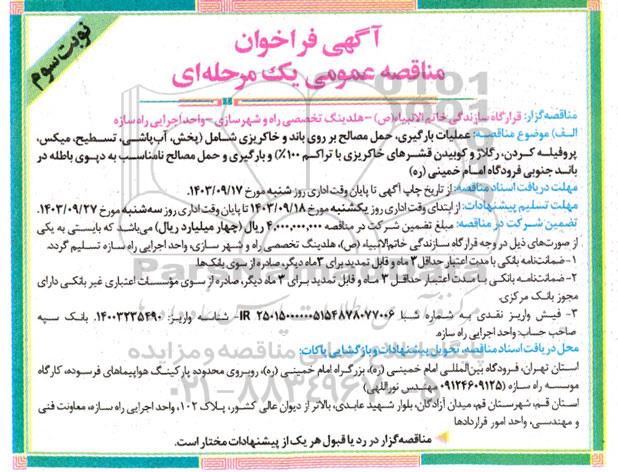 نوبت سوم
آگهی فراخوان
مناقصه عمومی یک مرحله‌ای
مناقصه‌گزار: قرارگاه سازندگی خاتم‌الانبیاء(ص) -هلدینگ تخصصی راه و شهرسازی -واحد اجرایی راه‌سازه
الف) موضوع مناقصه: عملیات بارگیری، حمل مصالح بر روی باند و خاکریزی شامل (پخش، آب‌پاشی، تسطیح، میکس،
پروفیله کردن، رگلاژ و کوبیدن قشرهای خاکریزی با تراکم ۱۰۰٪) و بارگیری و حمل مصالح نامناسب به دپوی باطله در
باند جنوبی فرودگاه امام خمینی (ره)
مهلت دریافت اسناد مناقصه: از تاریخ چاپ آگهی تا پایان وقت اداری روز شنبه مورخ ۱۴۰۳/۰۹/۱۷.
مهلت تسلیم پیشنهادات: از ابتدای وقت اداری روز یکشنبه مورخ ۱۴۰۳/۰۹/۱۸ تا پایان وقت اداری روز سه‌شنبه مورخ ۱۴۰۳/۰۹/۲۷.
تضمین شرکت در مناقصه: مبلغ تضمین شرکت در مناقصه ۴.۰۰۰.۰۰۰.۰۰۰ ریال (چهار میلیارد ریال) می‌باشد که بایستی به یکی
از صورت‌های ذیل در وجه قرارگاه سازندگی خاتم‌الانبیاء (ص)، هلدینگ تخصصی راه و شهر سازی، واحد اجرایی راه سازه تسلیم گردد.
۱- ضمانت‌نامه بانکی با مدت اعتبار حداقل ۳ ماه و قابل تمدید برای ۳ ماه دیگر، صادره از سوی بانک‌ها.
۲- ضمانتنامه بانکی با مدت اعتبار حداقل ۳ ماه و قابل تمدید برای ۳ ماه دیگر، صادره از سوی مؤسسات اعتباری غیر بانکی دارای
مجوز بانک مرکزی.
۳- فیش واریز نقدی به شماره شبا IR ۲۵۰۱۵۰۰۰۰۰۰۵۱۵۴۸۷۸۰۷۷۰۰۶- شناسه واریز: ۱۴۰۰۳۲۳۵۴۹۰. بانک سپه
صاحب حساب: واحد اجرایی راه سازه.
محل دریافت اسناد مناقصه، تحویل پیشنهادات و بازگشایی پاکات:
استان تهران، فرودگاه بین‌المللی امام خمینی (ره)، بزرگراه امام خمینی (ره)، روبروی محدوده پارکینگ هواپیماهای فرسوده، کارگاه
موسسه راه سازه (۰۹۱۲۴۶۰۹۱۲۵ مهندس نوراللهی)
استان قم، شهرستان قم، میدان آزادگان، بلوار شهید عابدی، بالاتر از دیوان عالی کشور، پلاک ۱۰۲، واحد اجرایی راه سازه، معاونت فنی
و مهندسی، واحد امور قراردادها
مناقصه‌گزار در رد یا قبول هر یک از پیشنهادات مختار است.